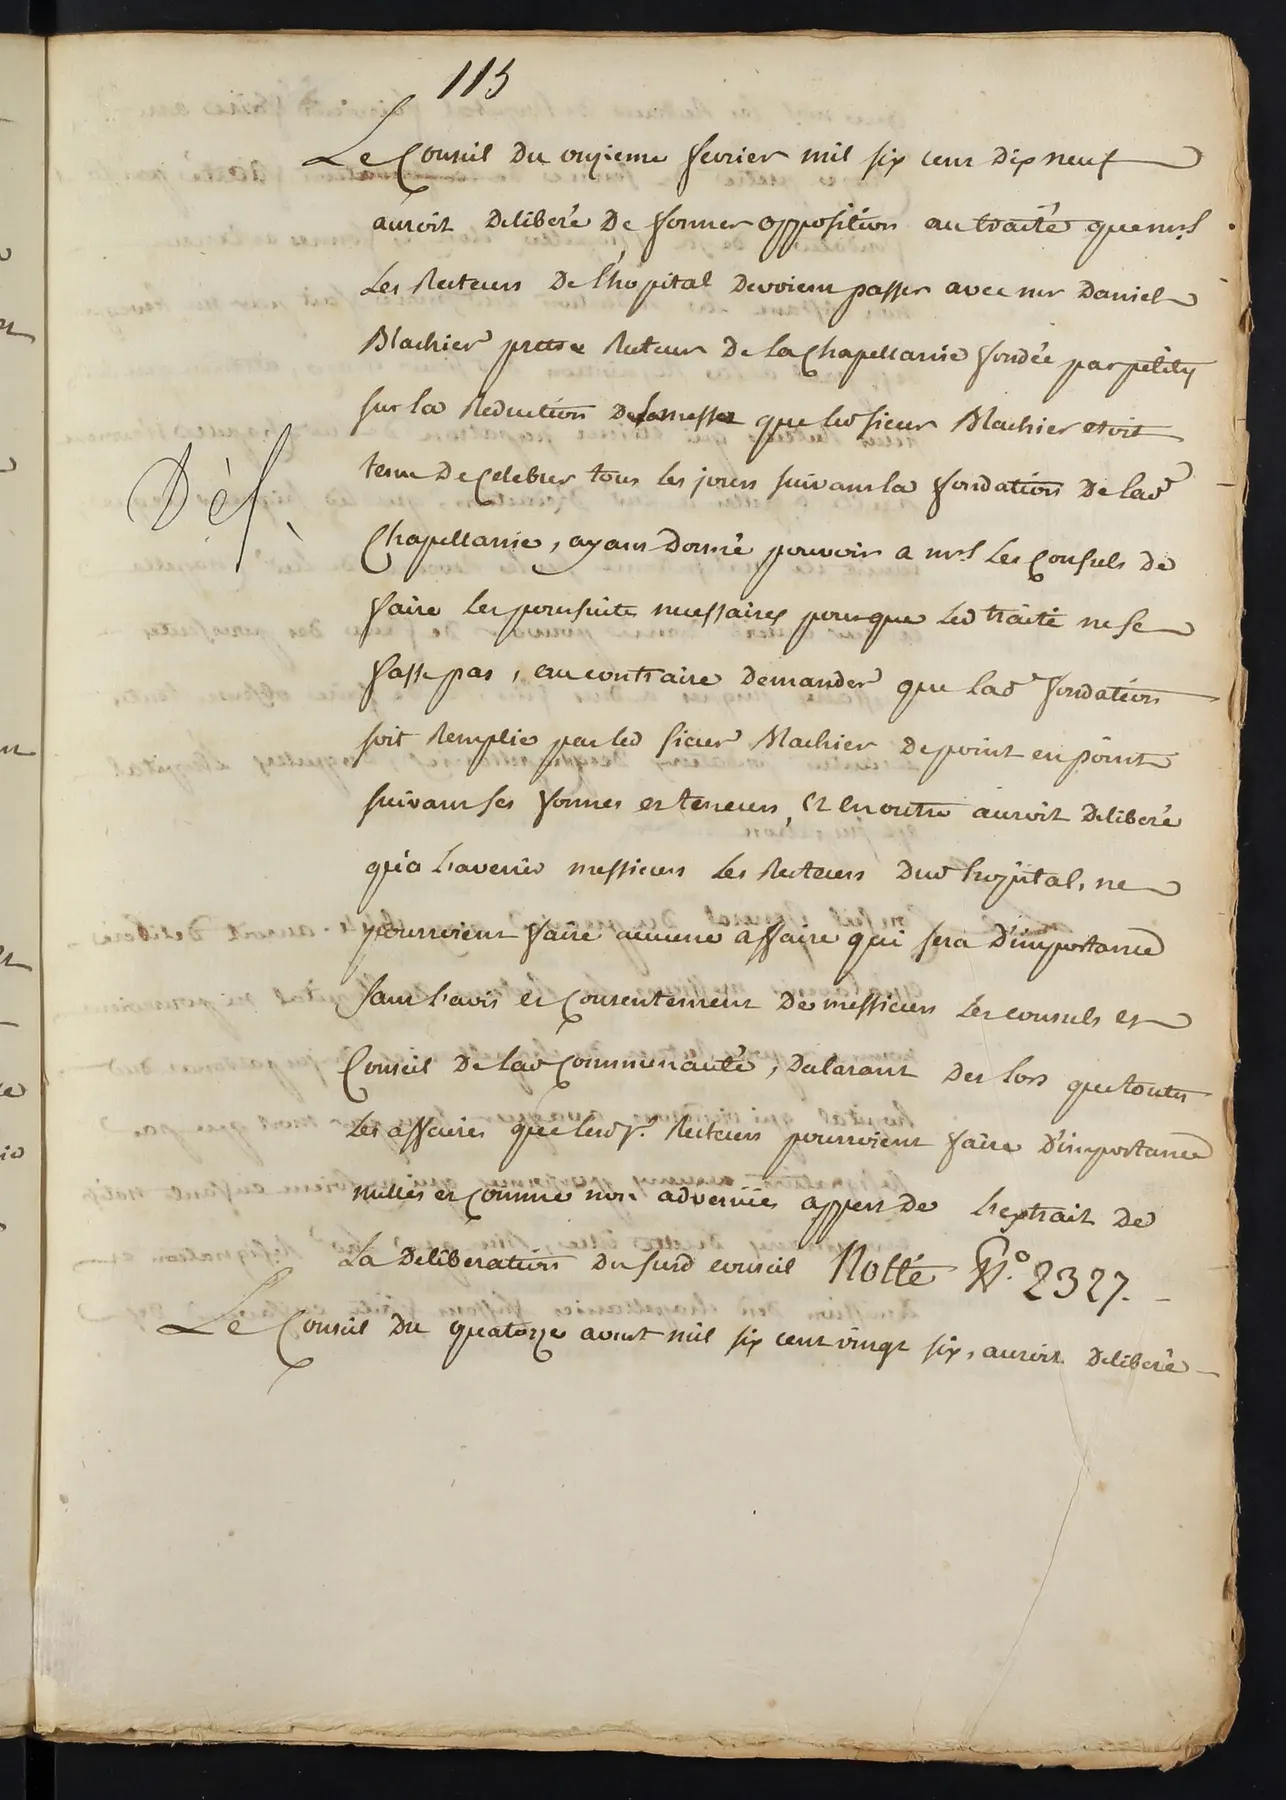 115
Le Conseil du onzieme fevrier mil six cent dix neuf
auroit deliberé de former opposition au traité que mrs
les Recteurs de l'hopital devoient passer avec mr Daniel
Blachier prettre Recteur de la Chapellanie fondée par petity
sur la Reduction de la messe que led sieur Blachier etoit
tenu de Celebrer tous les jours suivant la fondation de lad
Chapellanie, ayant donné pouvoir a mrs les Consuls de
faire les poursuites necessaires pour que led traité ne se
fasse pas, au contraire demander que lad fondation
soit Remplie par led sieur Blachier de point en point
suivant ses formes et teneurs, Et en outre auroit deliberé
qu'a l'avenir messieurs les Recteurs dud hopital, ne
pourroient faire aucune affaire qui sera d'importance
sans l'avis et Consentement de messieurs les consuls et
Conseil de lad Communauté, declarant des lors que toutes
les affaires que lesd srs. Recteurs pourroient faire d'importance
nulles et Comme non advenües appert de l'extrait de
la deliberation du susd conseil Notté N.º 2327.
Le Conseil du quatorze aoust mil six cent vingt six, auroit deliberé
Dél.